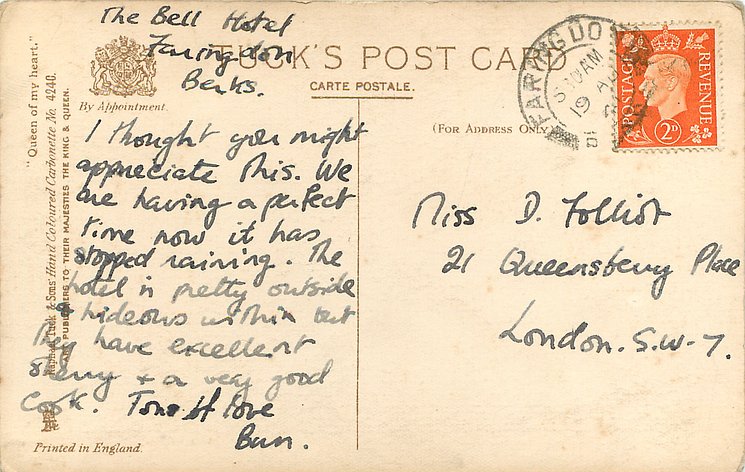 The Bell Hotel
Faringdon
Berks.
TUCK'S POST CARD
CARTE POSTALE.
By Appointment.
(For Address Only)
"Queen of my heart."
Raphael Tuck & Sons' Hand Coloured Carbonette No. 4246.
ART PUBLISHERS TO THEIR MAJESTIES THE KING & QUEEN.
I thought you might
appreciate this. We
are having a perfect
time now it has
stopped raining. The
hotel is pretty outside
& hideous within but
they have excellent
sherry & a very good
cook. love
Bun.
Printed in England.
FARINGDO
5 30 AM
19 AU
POSTAGE
REVENUE
2D
Miss D. Folliot
21 Queensberry Place
London. S.W-7.